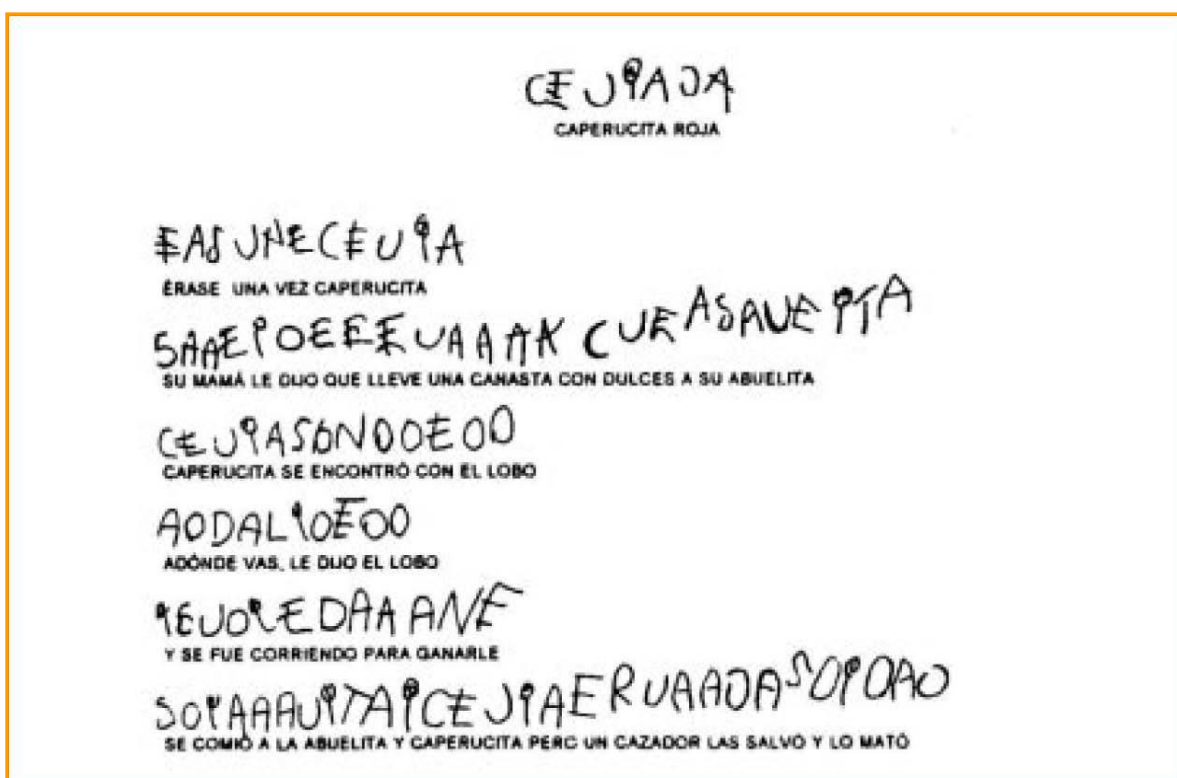 CEJIAJA
CAPERUCITA ROJA
EASUNECEUIA
ÉRASE UNA VEZ CAPERUCITA
SAAEIOEEEUAAAK CUEASAUEITA
SU MAMÁ LE DIJO QUE LLEVE UNA CANASTA CON DULCES A SU ABUELITA
CEUIASONDOEOO
CAPERUCITA SE ENCONTRÓ CON EL LOBO
AODALIOEOO
ADÓNDE VAS, LE DIJO EL LOBO
IEUOIEDAAANE
Y SE FUE CORRIENDO PARA GANARLE
SOIAAAUITAICEJIAERUAAOASOIOAO
SE COMIÓ A LA ABUELITA Y CAPERUCITA PERO UN CAZADOR LAS SALVÓ Y LO MATÓ